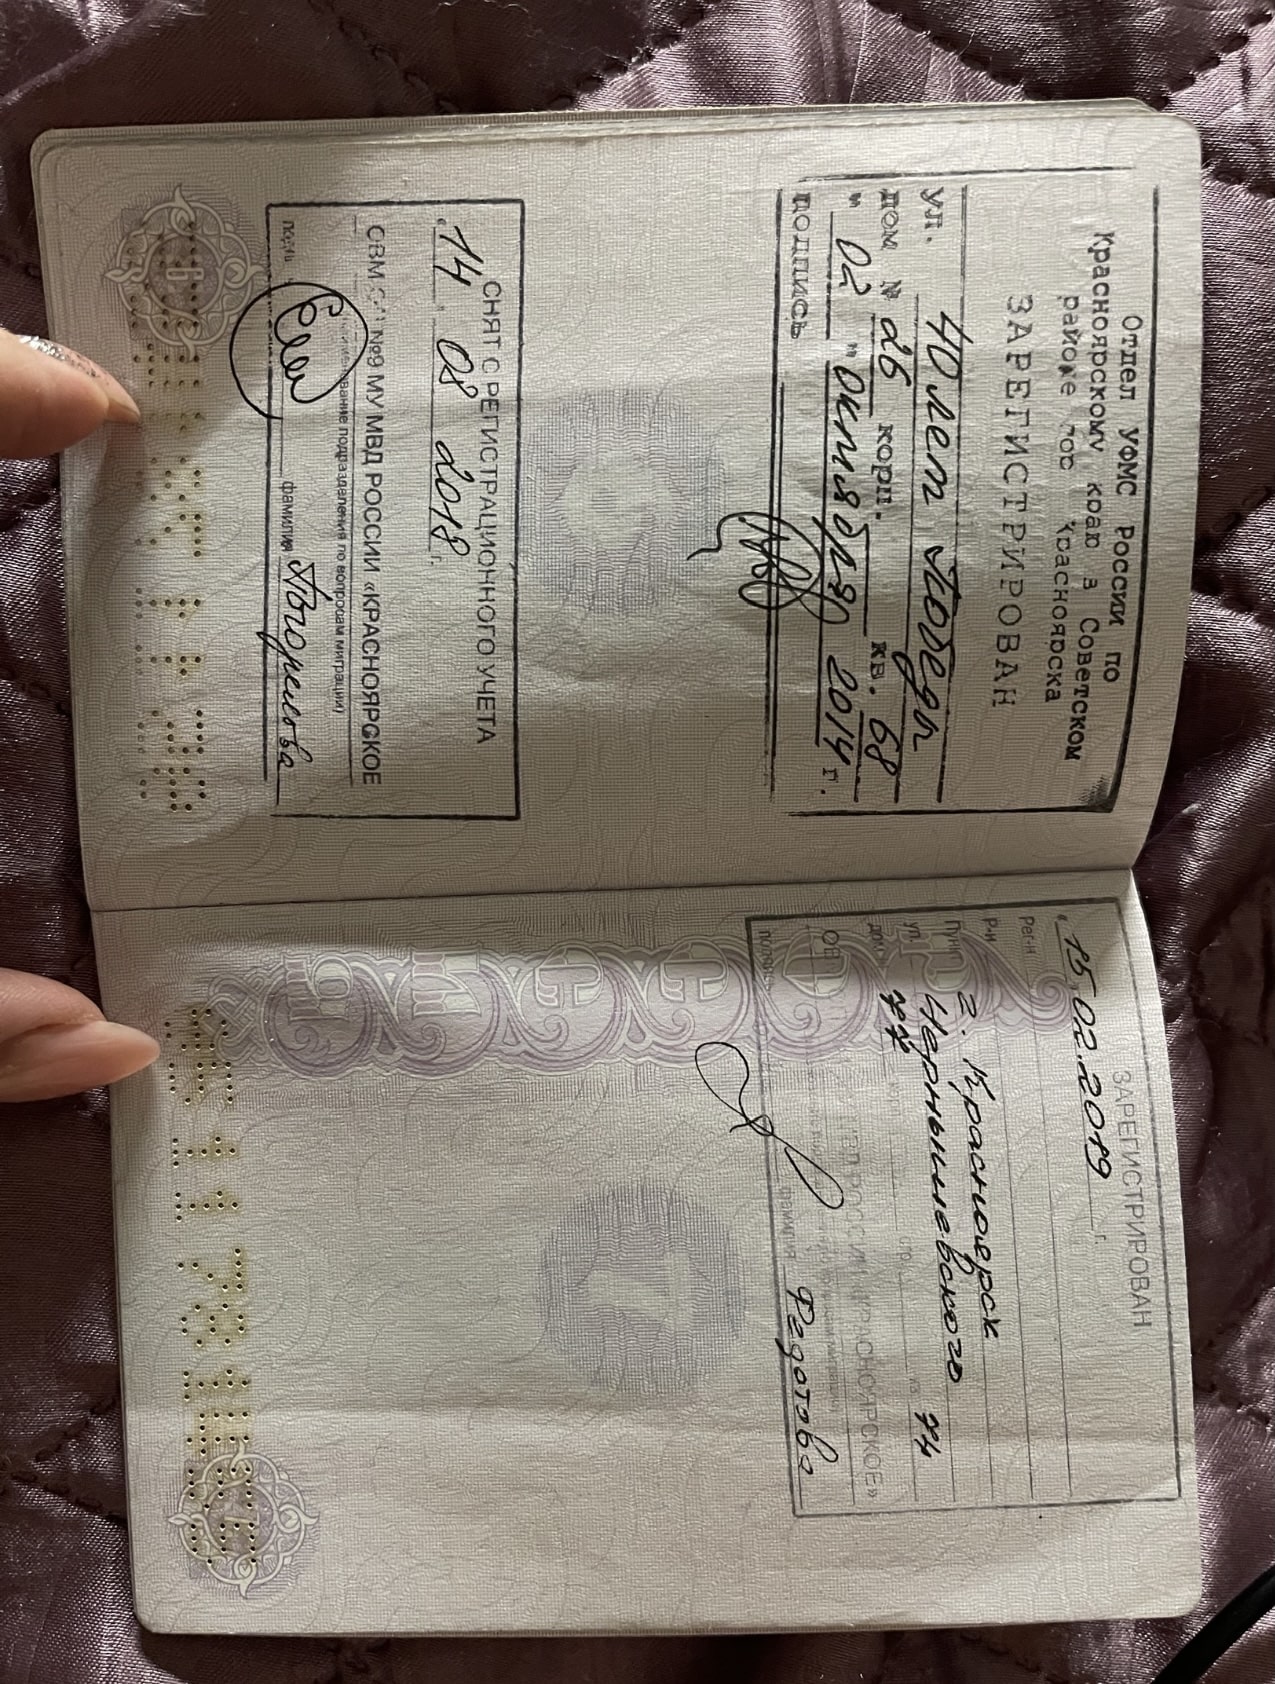 Отдел УФМС России по
Красноярскому краю в Советском
районе гор. Красноярска
ЗАРЕГИСТРИРОВАН
ул. 40 лет Победы
дом № 26 корп. кв. 68
" 02 " октября 2014 г.
подпись
СНЯТ С РЕГИСТРАЦИОННОГО УЧЕТА
14 08 2018 г.
№9 МУ МВД РОССИИ «КРАСНОЯРСКОЕ
подразделения по вопросам миграции)
фамилия
6
ЗАРЕГИСТРИРОВАН
" 15.02.2019 г.
Рег-н
Р-н
Пункт г. Красноярск
ул. Чернышевского
дом
РОССИИ «КРАСНОЯРСКОЕ»
Федотова
РОССИЯ
7